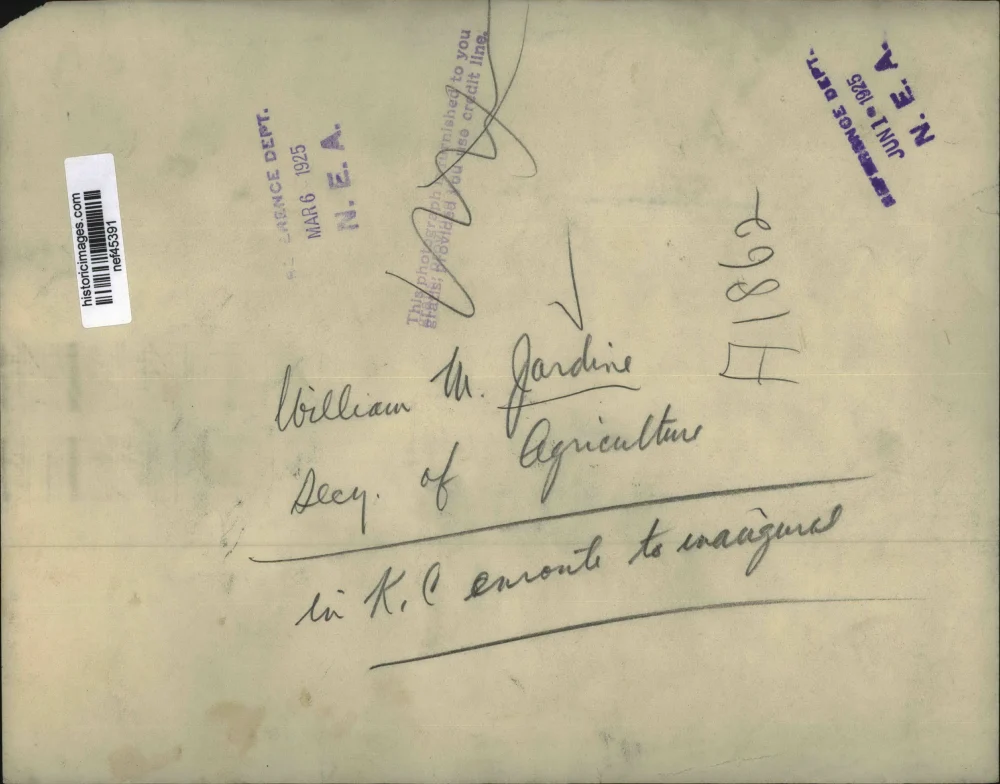 historicimages.com
nef45391
RENCE DEPT.
MAR 6 1925
N. E. A.
This photograph furnished to you
gratis, provided you use credit line.
DEPT.
JUN 1 1925
N. E. A.
A1862
William M. Jardine
Secy. of Agriculture
in K. C enroute to inaugural